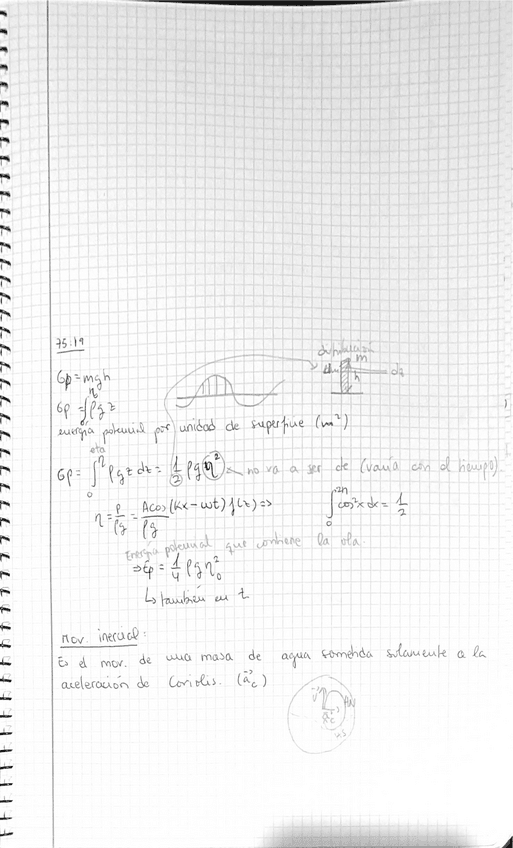 75:19
Ep = mgh
Ep = ∫₀^η ρgz
energía potencial por unidad de superficie (m²)
eta
Ep = ∫₀^η ρgz dz = 1/2 ρgη² no va a ser de (varía con el tiempo).
η = P/ρg = A cos(kx - ωt) f(z)/ρg => ∫₀^2π cos²x dx = 1/2
Energía potencial que contiene la ola.
⇒ Ep = 1/4 ρgη₀²
↳ también en t
Mov. inercial:
Es el mov. de una masa de agua sometida solamente a la
aceleración de Coriolis. (a⃗c)
m
dz
h
HN